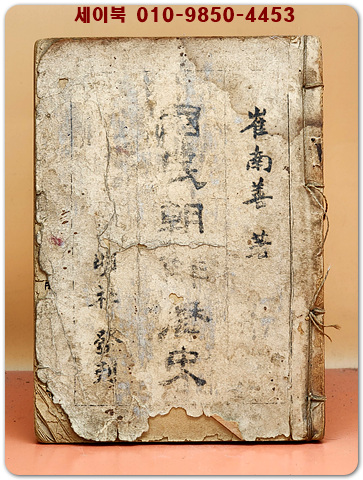 세이북 010-9850-4453
崔南善 著
國民朝鮮歷史
社 發刊